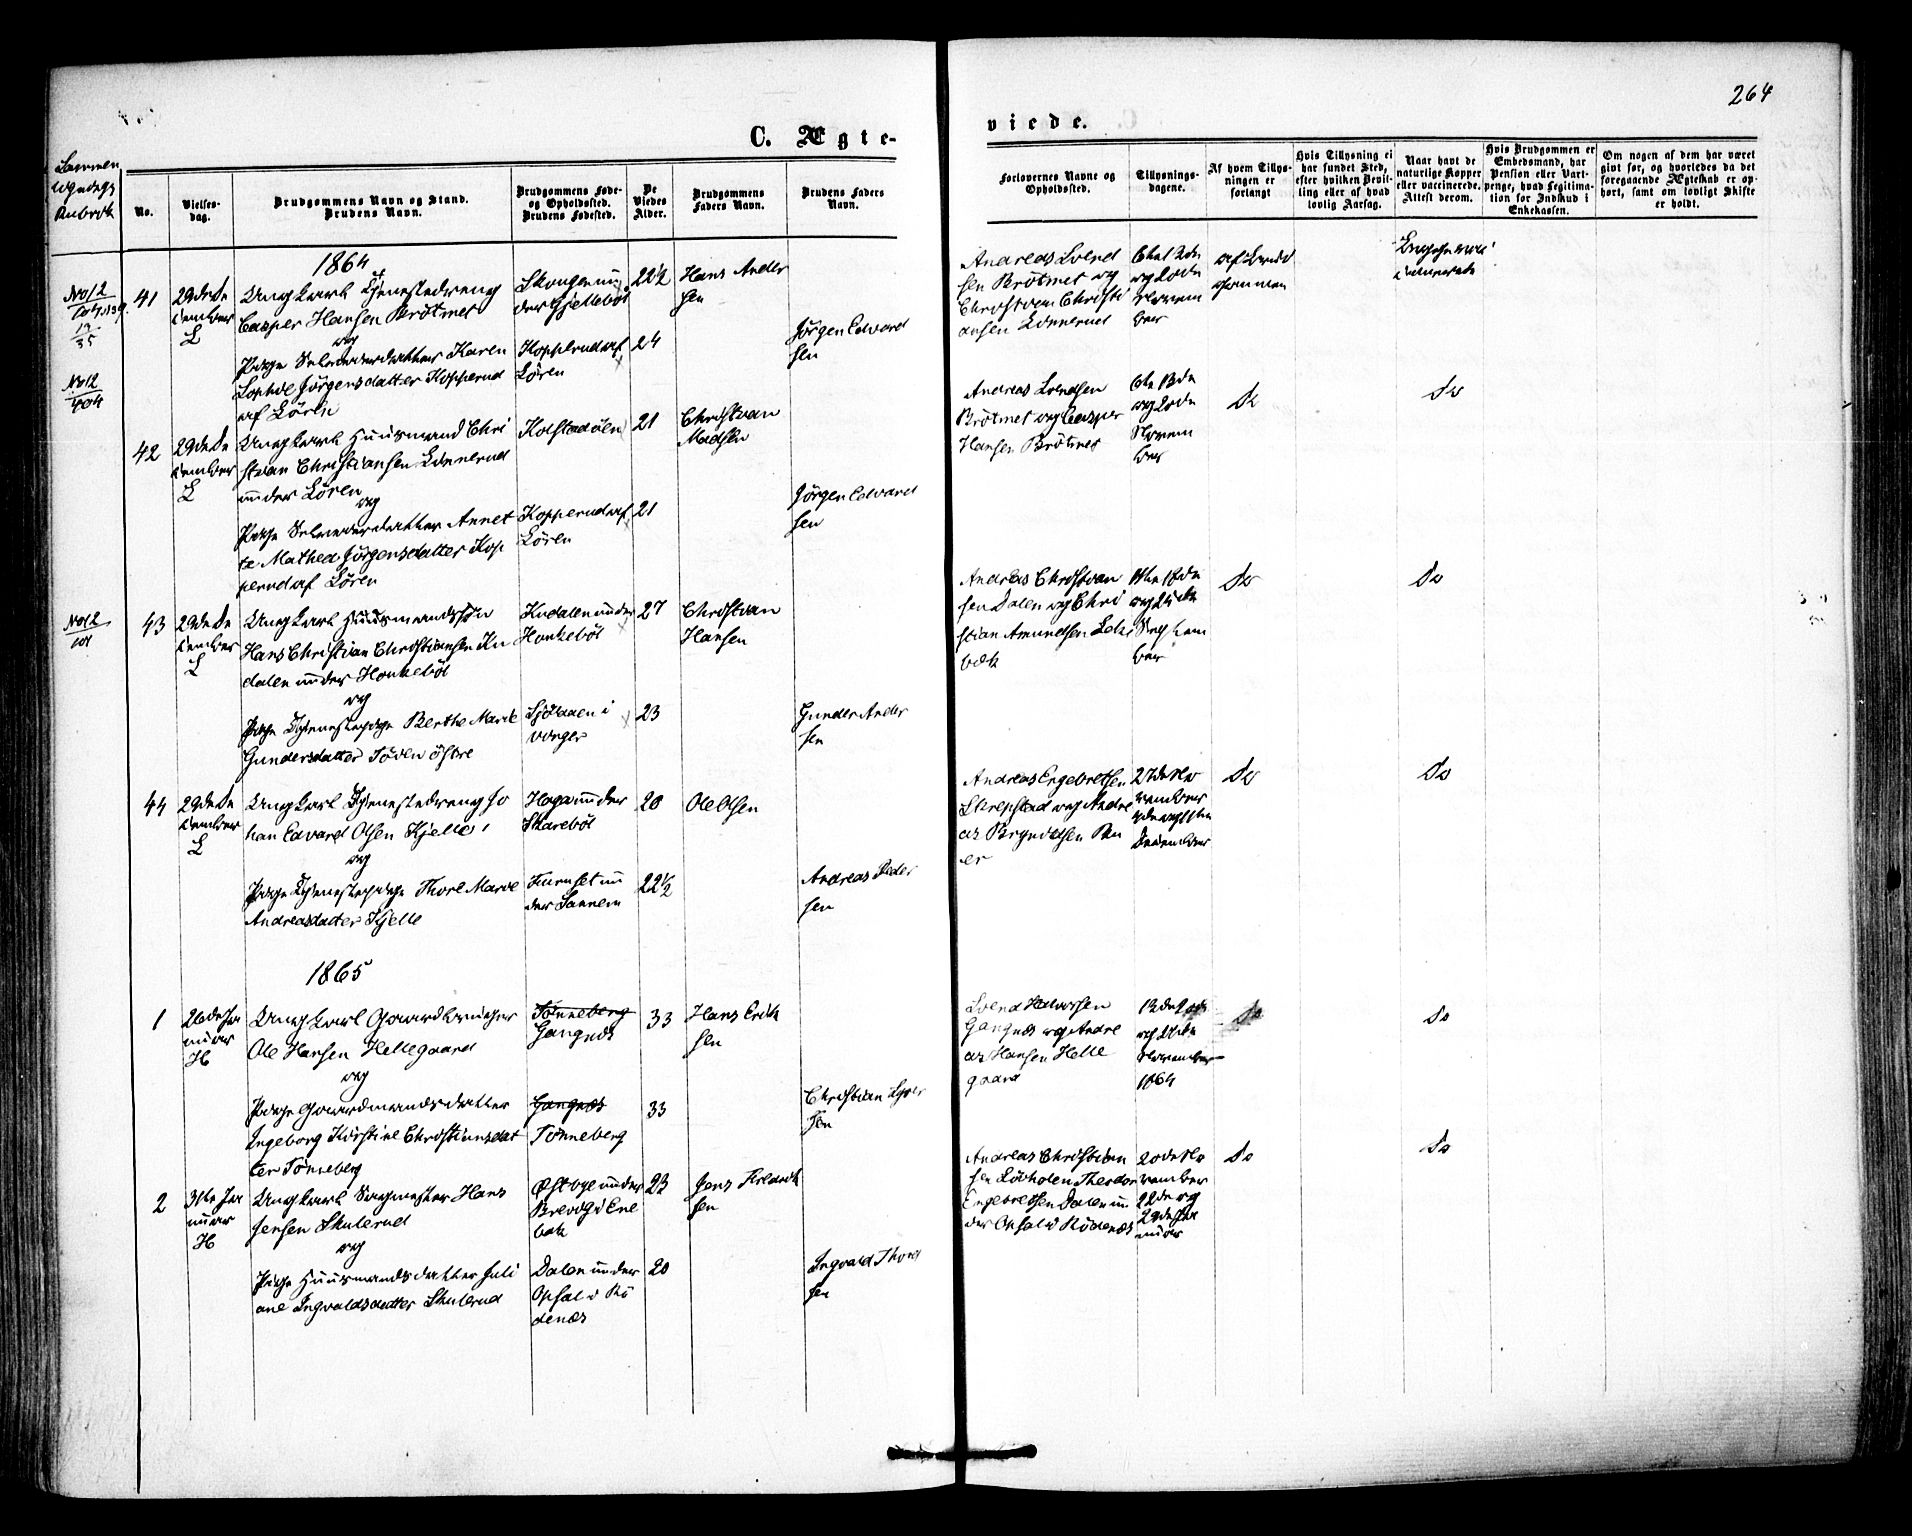 264
C. Ægte-
viede.
No.
Vielses-
dag.
Brudgommens Navn og Stand.
Brudens Navn.
Brudgommens Føde-
og Opholdssted.
Brudens Fødested.
De
Viedes
Alder.
Brudgommens
Faders Navn.
Brudens Faders
Navn.
Forlovernes Navne og
Opholdssted.
Tillysnings-
dagene.
Af hvem Tillys-
ningen er
forlangt
Hvis Tillysning ei
har fundet Sted,
efter hvilken Bevil-
ling eller af hvad
lovlig Aarsag.
Naar havt de
naturlige Kopper
eller vaccinerede.
Attest derom.
Hvis Brudgommen er
Embedsmand, har
Pension eller Vart-
penge, hvad Legitima-
tion for Indskud i
Enkekassen.
Om nogen af dem har været
givt før, og hvorledes da det
foregaaende Ægteskab er op-
hørt, samt om lovligt Skifte
er holdt.
1864
41
29de De
cember
L
Ungkarl Tjenestedreng
Casper Hansen Brötmet
og
Pige Selveierdatter Karen
Sophie Jörgensdatter Kopperud
af Lören
Skougen un
der Gjelleböl
Kopperud af
Lören
22½
24
Hans Ander
sen
Jörgen Edvard
sen
Andreas Svend
sen Brötmet og
Christian Christi
ansen Linnerud
og 20de
Novem
ber
42
29de De
cember
L
Ungkarl Huusmand Chri
stian Christiansen Linnerud
under Lören
og
Pige Selveierdatter Annet
te Mathea Jörgensdatter Kop
perud af Lören
Kolstadöen
Kopperud af
Lören
21
21
Christian
Madsen
Jörgen Edvard
sen
Andreas Svendsen
Brötmet og Casper
Hansen Brötmet
6te 13de
og 20de
Novem
ber
Do
Do
43
29de De
cember
L
Ungkarl Huusmandssön
Hans Christian Christiansen Ku
dalen under Honkeböl
og
Pige Tjenestepige Berthe Marie
Gundersdatter Töien östre
Kudalen under
Honkeböl
27
23
Christian
Hansen
Gunder Ander
sen
Andreas Christian
sen Dalen og Chri
stian Amundsen
bæk
11te 18de
og 25de
Septem
ber
Do
Do
44
29de De
cember
L
Ungkarl Tjenestedreng Jo
han Edvard Olsen Kjelle
og
Pige Tjenestepige Thore Marie
Andreasdatter Kjelle
Haga under
Skareböl
20
22½
Ole Olsen
Andreas Peder
sen
Andreas Engebretsen
27de No
vember
December
Do
Do
1865
1
26de Ja
nuar
H
Ungkarl Gaardbruger
Ole Hansen Hellegaard
og
Pige Gaardmandsdatter
Ingeborg Kirstine Christiansdat
ter Tönneberg
Tönneberg
Gangnæs
Gangnæs
Tönneberg
33
33
Hans Erik
sen
Christian
sen
Svend Halvorsen
Gangnæs og Andre
as Hansen Helle
gaard
og 27de
November
1864
Do
Do
2
31te Ja
nuar
H
Ungkarl Sagmester Hans
Jensen Skulerud
og
Pige Huusmandsdatter Juli
ane Ingvaldsdatter Skulerud
Östbye under
Brevig i Ene
bak
Dalen under
Opsal i Rö
denæs
23
20
Jens Fredrik
sen
Ingvald Thord
sen
Andreas Christian
sen Lövholen Theodor
Engebretsen Dalen un
der Opsal i Rödenæs
20de No
vember
22de og
29de Ja
nuar
Do
Do